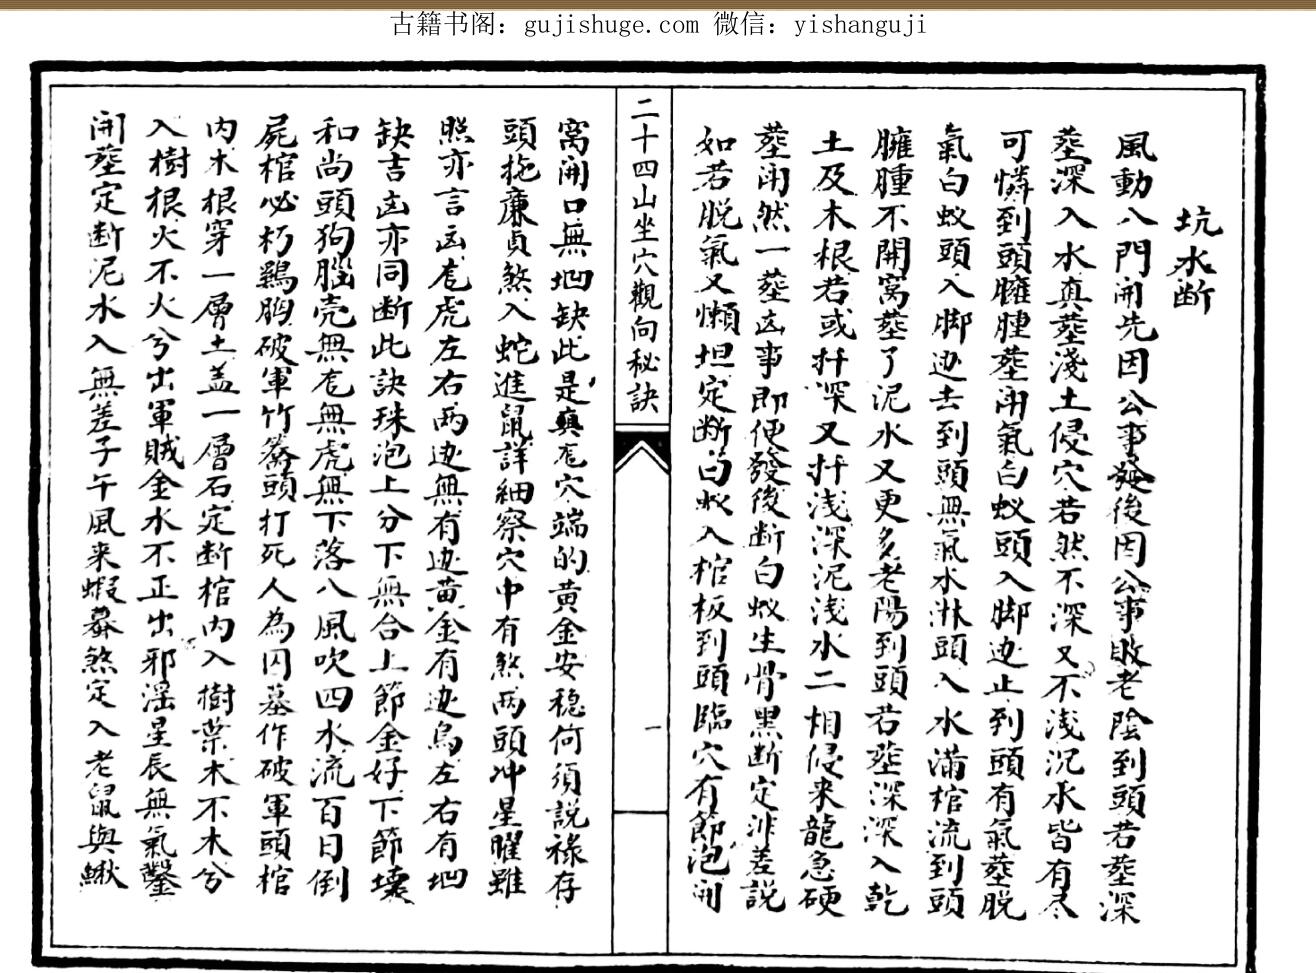 古籍书阁：gujishuge.com 微信：yishanguji
坑水断
風動八門闹先因公事發後因公事敗老陰到頭若塟深
塟深入水真塟淺土侵穴若然不深又不浅沉水皆有尽
可憐到頭臃腫塟闹氣白蚁頭入脚边止到頭有氣塟脱
氣白蚁頭入脚边去到頭無氣水淋頭入水滿棺流到頭
臃腫不開窩塟了泥水又更多老陽到頭若塟深深入乾
土及木根若或扦深又扦浅深泥浅水二相侵来龍急硬
塟闹然一塟凶事即便發後断白蚁生骨黑断定非差説
如若脱氣又懶坦定断白蚁入棺板到頭臨穴有節泡闹
二十四山坐穴觀向秘訣
一
窩闹口無地缺此是真龙穴端的黄金安穏何須説禄存
頭拖廉貞煞入蛇進鼠詳細察穴中有煞两頭冲星曜雖
照亦言凶龙虎左右两边無有边黄金有边鳥左右有地
缺吉凶亦同断此訣珠泡上分下無合上節金好下節壊
和尚頭狗腦壳無龙無虎無下落八風吹四水流百日倒
屍棺必朽鷄胸破軍竹篙頭打死人為囚墓作破軍頭棺
内木根穿一層土盖一層石定断棺内入樹葉木不木兮
入樹根火不火兮出軍賊金水不正出邪滛星辰無氣鑿
闹塟定断泥水入無差子午風来蝦蟇煞定入老鼠與鰍